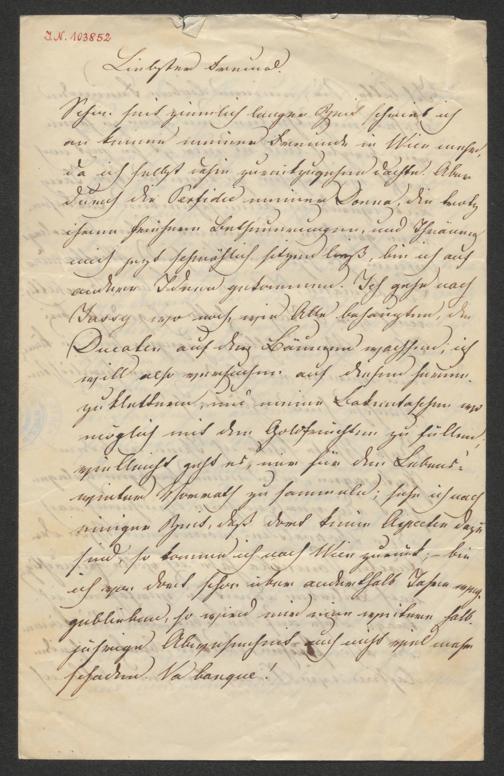 I.N. 103852
Liebster Freund.
Schon seit ziemlich langer Zeit schrieb ich
an keinen meiner Freunde in Wien mehr,
da ich selbst dahin zurückzugehen dachte. Aber
durch die Perfidie meiner Donna, die trotz
ihren frühern Betheuerungen, und Thränen
mich jetzt schmählich sitzen ließ, bin ich auf
andere Ideen gekommen. Ich gehe nach
Jassy wo noch, wie Alle behaupten, die
Ducaten auf den Bäumen wachsen; ich
will also versuchen auf diesen herum
zu klettern, und meine Taschen wo
möglich mit den Goldfrüchten zu füllen,
vielleicht geht es, mir für den Lebens-
winter Vorrath zu sammeln; sehe ich nach
einiger Zeit, daß dort keine Aspecten dazu
sind, so komme ich nach Wien zurück; – bin
ich von dort schon über anderthalb Jahre weg
geblieben, so wird mir eine weitere halb-
jährige Abwesenheit auch nicht viel mehr
schaden. Va banque!